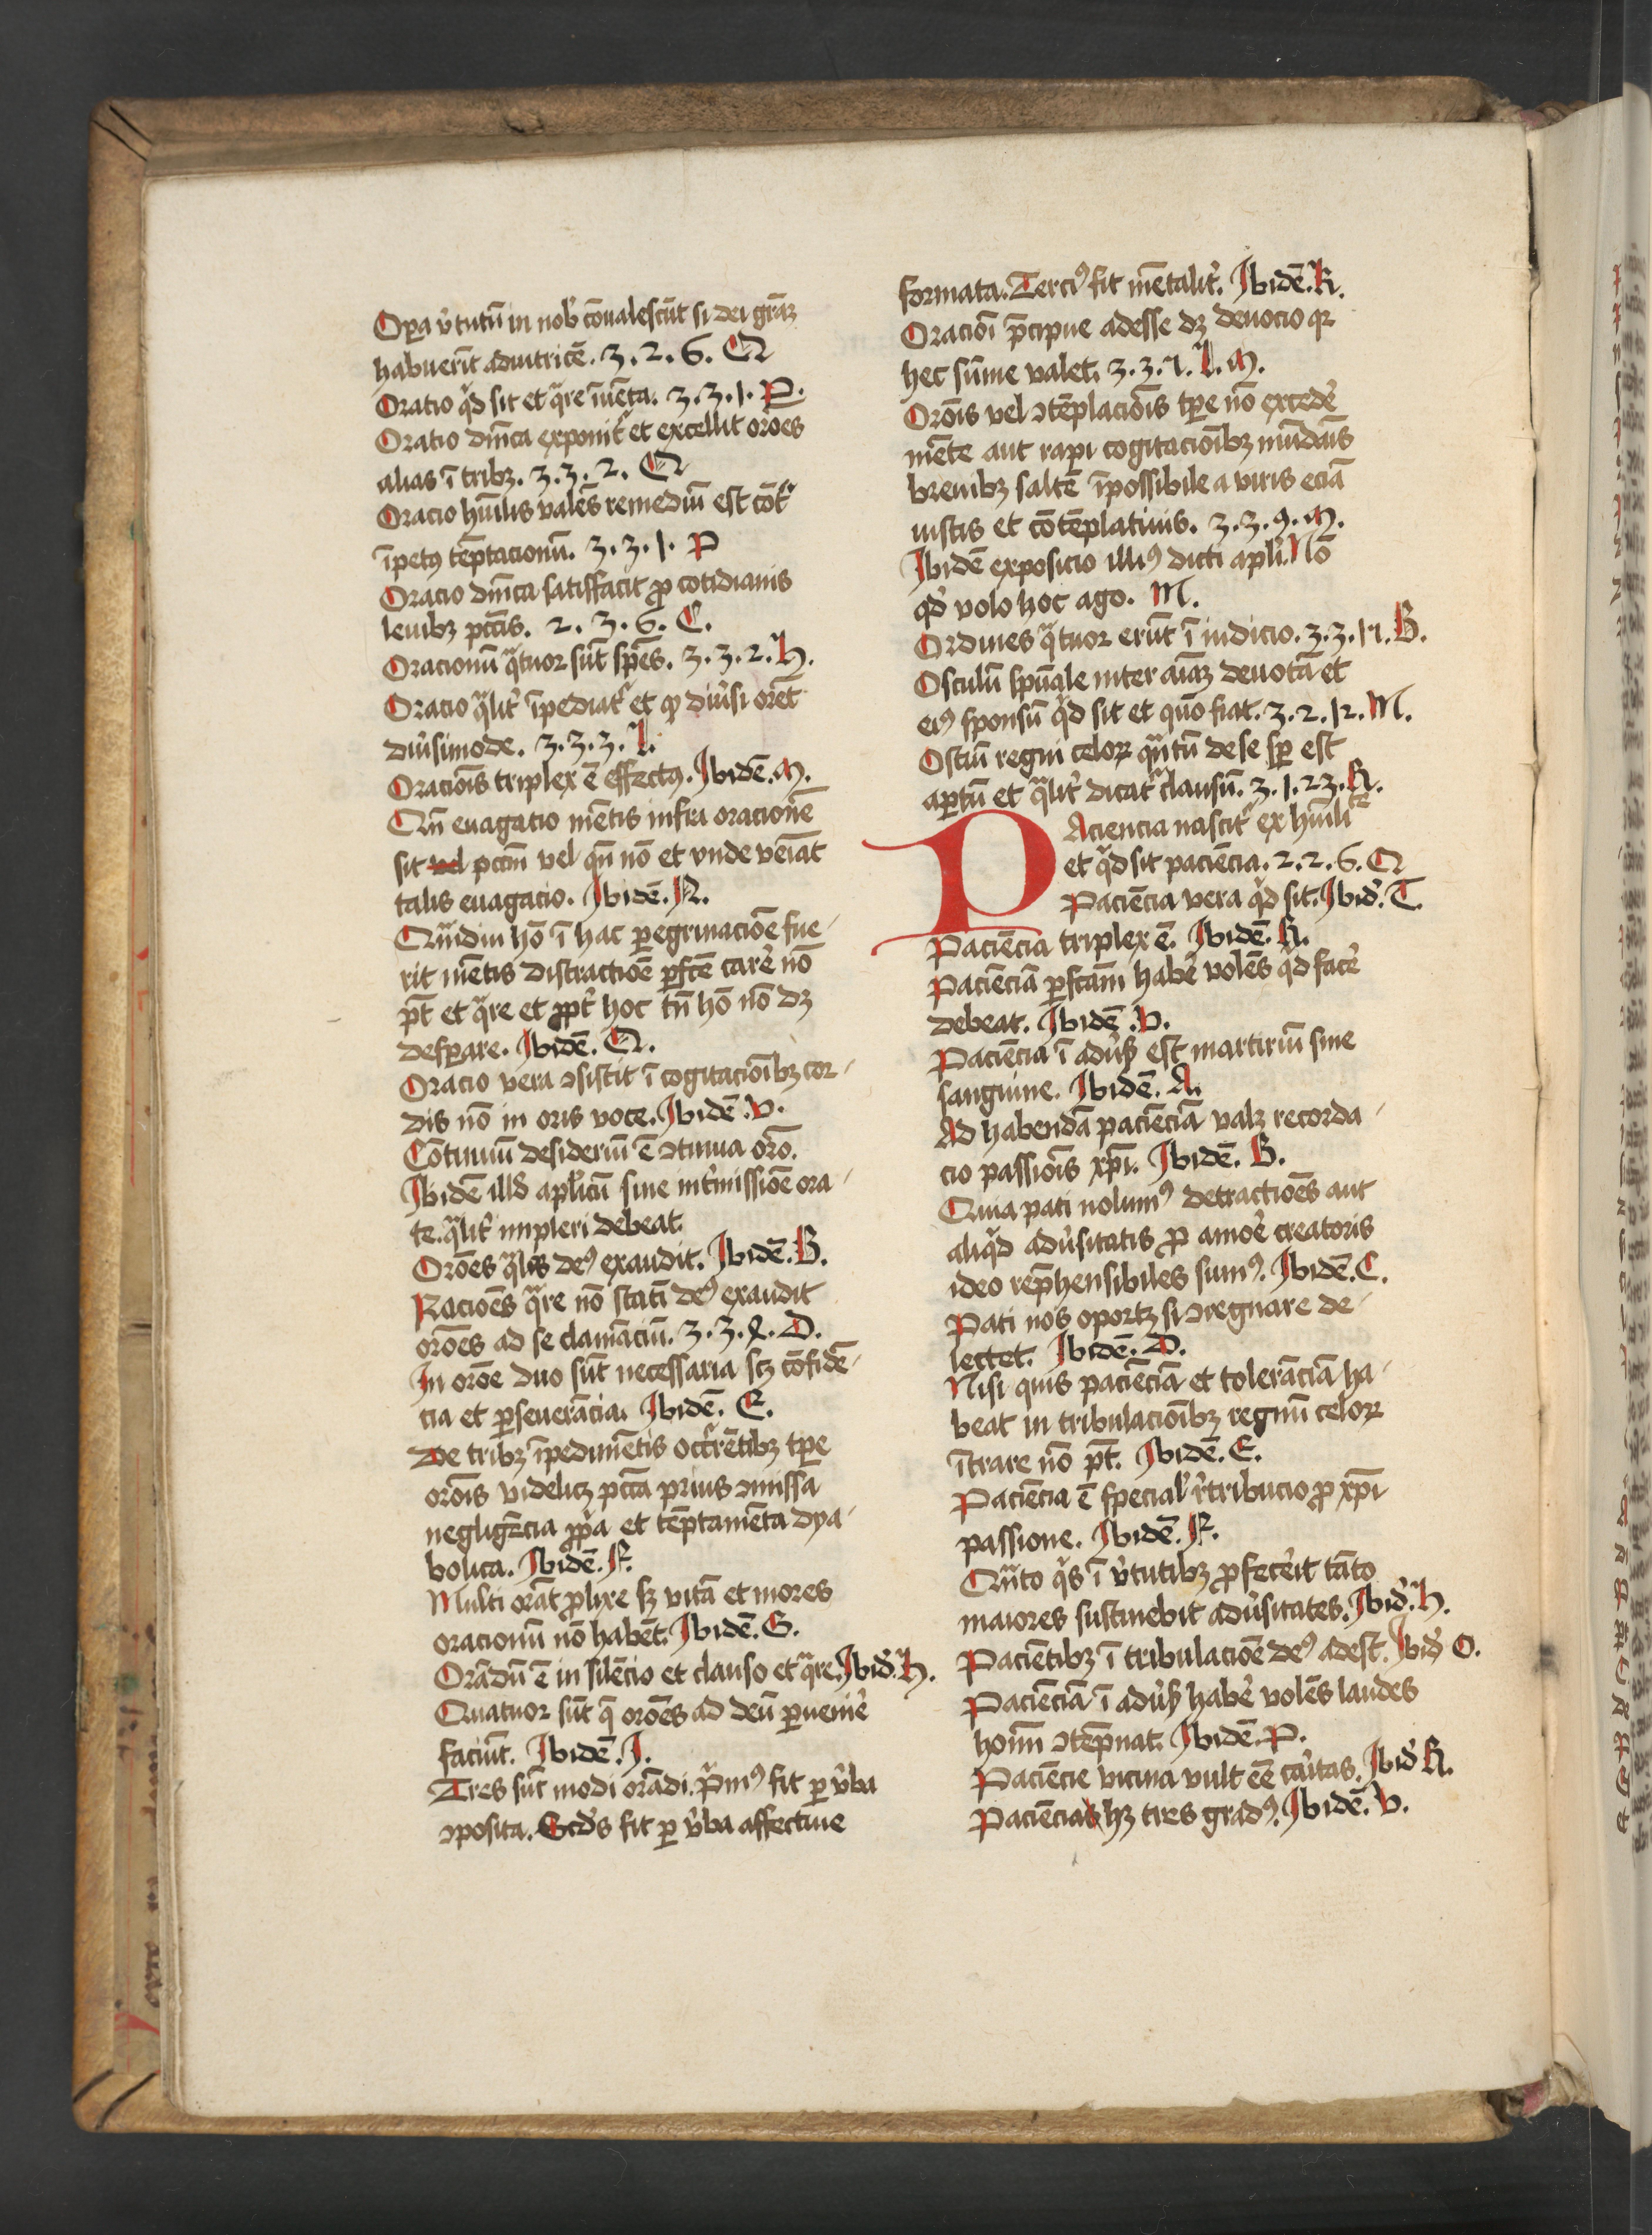 Oꝑa v̾tutū in nob̾ cōualescūt si dei gr̄aꝫ
habuerīt adiutricē. 3. 2. 6. Q
Oratio qͥd sit et qͣre īuēta. 3. 3. 1. P.
Oratio dn̄ica exponit᷑ et excellit orōes
alias ī tribꝫ. 3. 3. 2. Q
Oracio hūilis valēs remediū est cōtͣ
īpetꝰ tēptacionū. 3. 3. 1. P
Oracio dn̄ica satisffacit ꝓ cotidianis
leuibꝫ pctīs. 2. 3. 6. C.
Oracionū qͣtuor sūt spēs. 3. 3. 2. H.
Oracio qͣlit̾ īpediat᷑ et qꝙ diu̾si orēt
diu̾simode. 3. 3. 3. L.
Oraciōis triplex ē effectꝰ. Ibidē. M.
Qn̄ euagatio mētis infra oracionē
sit vel pctm̄ vel qn̄ nō et vnde veniat
talis euagacio. Ibidē. N.
Qm̄diu hō ī hac ꝑegrinaciōe fue-
rit mētis distractiōe ꝑfcē car̾e nō
pt̄ et qͣre et ꝓpt̾ hoc tn̄ hō nō dꝫ
desꝑare. Ibidē. Q.
Oracio vera ꝯsistit ī cogitacioībꝫ cor-
dis nō in oris voce. Ibidē. V.
Cōtinuū desideriū ē ꝯtinua orō.
Ibidē illd̾ apl̾icū sine int̾missiōe ora-
te. qͣlit̾ impleri debeat.
Orōes qͣles deꝰ exaudit. Ibidē. B.
Raciōes qͣre nō statī deꝰ exaudit
orōes ad se clamāciū. 3. 3. 8. D.
In orōe duo sūt necessaria scꝫ cōfidē-
cia et ꝑseuerācia. Ibidē. E.
De tribꝫ īpedimētis occ᷑rētibꝫ tꝑe
orōis videlicꝫ pctā prius ꝯmissa
negligēcia ꝓpͥa et tēptamēta dya-
bolica. Ibidē. F.
Multi orāt ꝓlixe sꝫ vitā et mores
oracionū nō habēt. Ibidē. G.
Orādū ē in silēcio et clauso et qͣre. Ibid̾. H.
Quatuor sūt q̄ orōes ad deū ꝑuenir̾e
faciūt. Ibidē. I.
Tres sūt modi orādi. pͥmꝰ fit ꝑ v̾ba
ꝯposita. Scd̾s fit ꝑ v̾ba affectiue
formata. Terciꝰ fit mētalit̾. Ibidē. K.
Oraciōi p̄cipue adesse dꝫ deuocio qꝛ
hec sūme valet. 3. 3. 7. L. M.
Orōis vel ꝯtēplaciōis tꝑe nō exceder̾e
mēte aut rapi cogitacioībꝫ mūdāis
breuibꝫ saltē īpossibile a viris eciā
iustis et cōtēplatiuis. 3. 3. 9. M.
Ibidē exposicio illiꝰ dicti apl̾i. Nō
qd̾ volo hoc ago. M.
Ordines qͣtuor erūt ī iudicio. 3. 3. 17. B.
Osculū spūale inter aīaꝫ deuotā et
eiꝰ sponsū qͥd sit et quō fiat. 3. 2. 12. M.
Ostiū regni celoꝝ qn̄tū de se sꝑ est
aꝑtū et qͣlit̾ dicat᷑ clausū. 3. 1. 23. K.
PAciencia nascit᷑ ex hūilitͤ
et qͥd sit paciēcia. 2. 2. 6. Q
Paciēcia vera qͥd sit. Ibid̾. T.
Paciēcia triplex ē. Ibidē. K.
Paciēciā ꝑfcam̄ haber̾e volēs qͥd facer̾e
debeat. Ibidē. V.
Paciēcia ī adu̾sꝭ est martiriū sine
sanguine. Ibidē. A.
Ad habendā paciēciā valꝫ recorda-
cio passiōis xp̄i. Ibidē. B.
Quia pati nolumꝰ detractiōes aut
aliqͥd adu̾sitatis ꝓ amor̾e creatoris
ideo rep̄hensibiles sumꝰ. Ibidē. C.
Pati nos oportꝫ si ꝯregnare de-
lectet. Ibidē. D.
Nisi quis paciēciā et tolerāciā ha-
beat in tribulacioībꝫ regnū celoꝝ
ītrare nō pt̄. Ibidē. E.
Paciēcia ē special̾ r̾tribucio ꝓ xp̄i
passione. Ibidē. F.
Qn̄to qͥs ī v̾tutibꝫ ꝓfecerit tāto
maiores sustinebit adu̾sitates. Ibid̾. H.
Paciētibꝫ ī tribulaciōe deꝰ adest. Ibid̾ O.
Paciēciā ī adu̾sꝭ haber̾e volēs laudes
hoīm ꝯtēpnat. Ibidē. P.
Paciēcie vicina vult eē car̾itas. Ibid̾ K.
Paciēcia hꝫ tres gradꝰ. Ibidē. V.